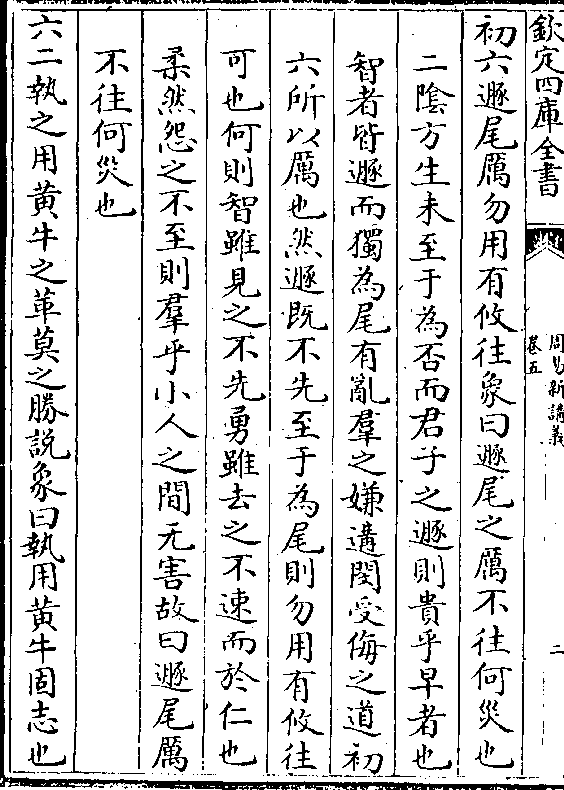 欽定四庫全書
周易新講義
卷五
二
初六遯尾厲勿用有攸往象曰遯尾之厲不往何災也
二陰方生未至于為否而君子之遯則貴乎早者也
智者皆遯而獨為尾有亂羣之嫌遘閔受侮之道初
六所以厲也然遯既不先至于為尾則勿用有攸往
可也何則智雖見之不先勇雖去之不速而於仁也
柔然怨之不至則羣乎小人之間无害故曰遯尾厲
不往何災也
六二執之用黄牛之革莫之勝説象曰執用黄牛固志也